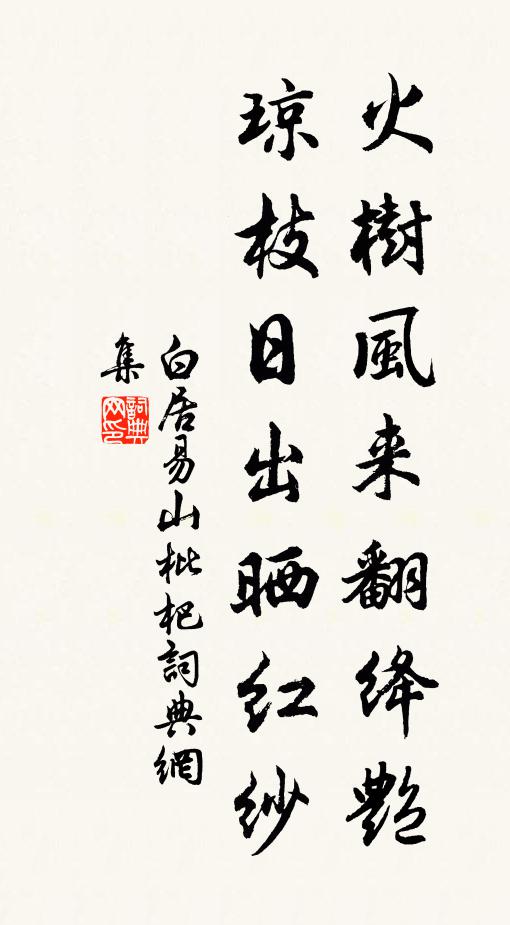 火樹風来翻絳艷
琼枝日出晒红纱
白居易山枇杷詞典網
集
詞典网印